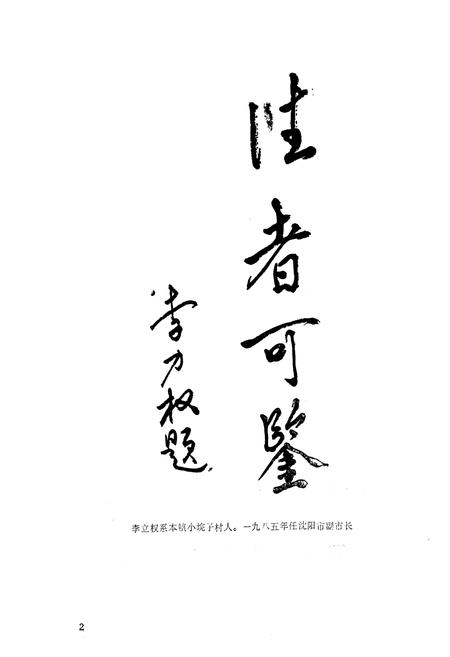 往者可鑒
李力权题
李立权系本镇小垸子村人。一九八五年任沈阳市副市长
2